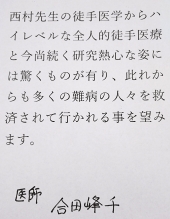 西村先生の徒手医学からハ
イレベルな全人的徒手医療
と今尚続く研究熱心な姿に
は驚くものが有り、此れか
らも多くの難病の人々を救
済されて行かれる事を望み
ます。
医師
合田峰千